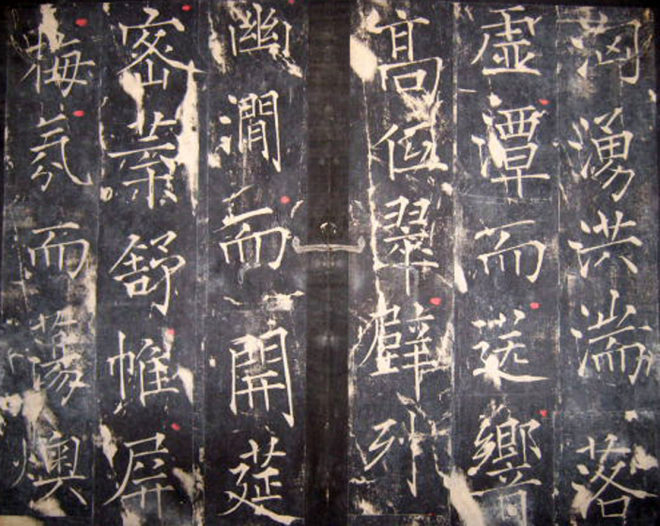 洶湧洪湍落
虛潭而送響
高低翠壁列
幽澗而開筵
密葉舒帷屏
梅氛而蕩燠